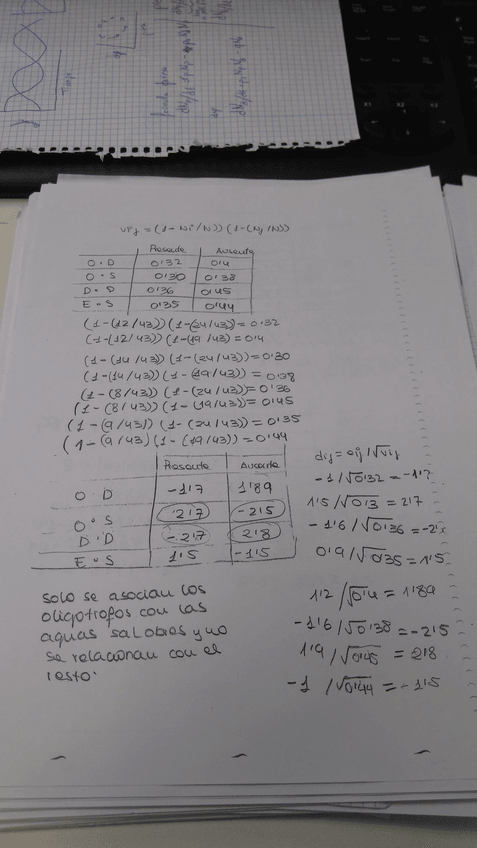 Tiempo
vij = (1-Ni/N))(1-(Nj/N))
Presente Ausente
O·D 0'32 0'4
O·S 0'30 0'38
D·D 0'36 0'45
E·S 0'35 0'44
(1-(12/43))(1-(24/43))=0'32
(1-(12/43))(1-(19/43)=0'4
(1-(14/43))(1-(24/43))=0'30
(1-(14/43))(1-(19/43))=0'38
(1-(8/43))(1-(24/43))=0'36
(1-(8/43))(1-(19/43))=0'45
(1-(9/43))(1-(24/43))=0'35
(1-(9/43)(1-(19/43))=0'44
Presente Ausente
O·D -1'7 1'89
O·S 2'7 -2'5
D·D -2'7 2'8
E·S 1'5 -1'5
dij=eij/√vij
-1/√0'32=-1'7
1'5/√0'3=2'7
-1'6/√0'36=
0'9/√0'35=1'5
1'2/√0'4=1'89
-1'6/√0'38=-2'5
1'9/√0'45=2'8
-1/√0'44=-1'5
Solo se asocian los
oligotrofos con las
aguas salobres y no
se relacionan con el
resto.